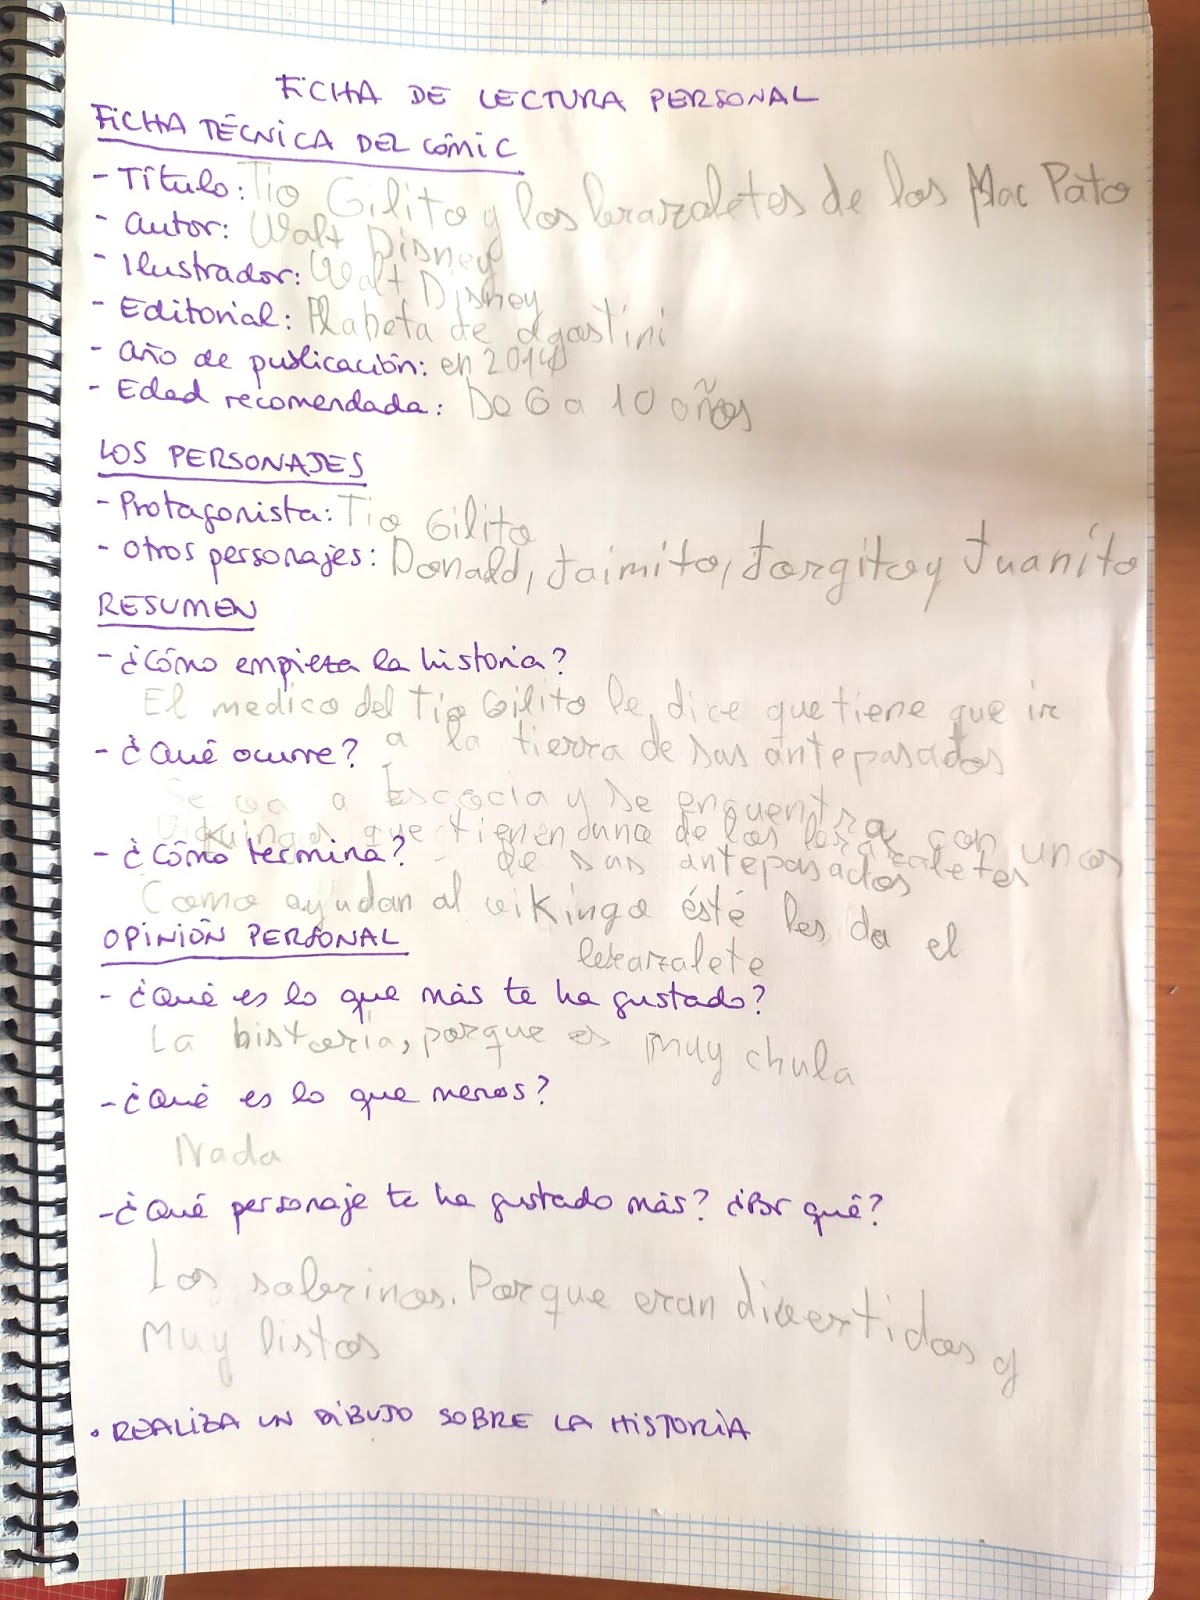 FICHA DE LECTURA PERSONAL
FICHA TÉCNICA DEL CÓMIC
- Título: Tio Gilito y los brazaletes de los Mac Pato
- Autor: Walt Disney
- Ilustrador: Walt Disney
- Editorial: Planeta de agostini
- Año de publicación: en 2014
- Edad recomendada: De 6 a 10 años
LOS PERSONAJES
- Protagonista: Tio Gilito
- Otros personajes: Donald, Jaimito, Jorgito y Juanito
RESUMEN
- ¿Cómo empieza la historia?
El medico del Tio Gilito le dice que tiene que ir
a la tierra de sus antepasados
- ¿Qué ocurre?
Se va a Escocia y se encuentra con unos
que tienen uno de los brazaletes
de sus antepasados
- ¿Cómo termina?
Como ayudan al vikingo ésté les da el
brazalete
OPINIÓN PERSONAL
- ¿Qué es lo que más te ha gustado?
La historia, porque es muy chula
- ¿Qué es lo que menos?
Nada
- ¿Qué personaje te ha gustado más? ¿Por qué?
Los sobrinos. Porque eran divertidos y
Muy listos
• REALIZA UN DIBUJO SOBRE LA HISTORIA